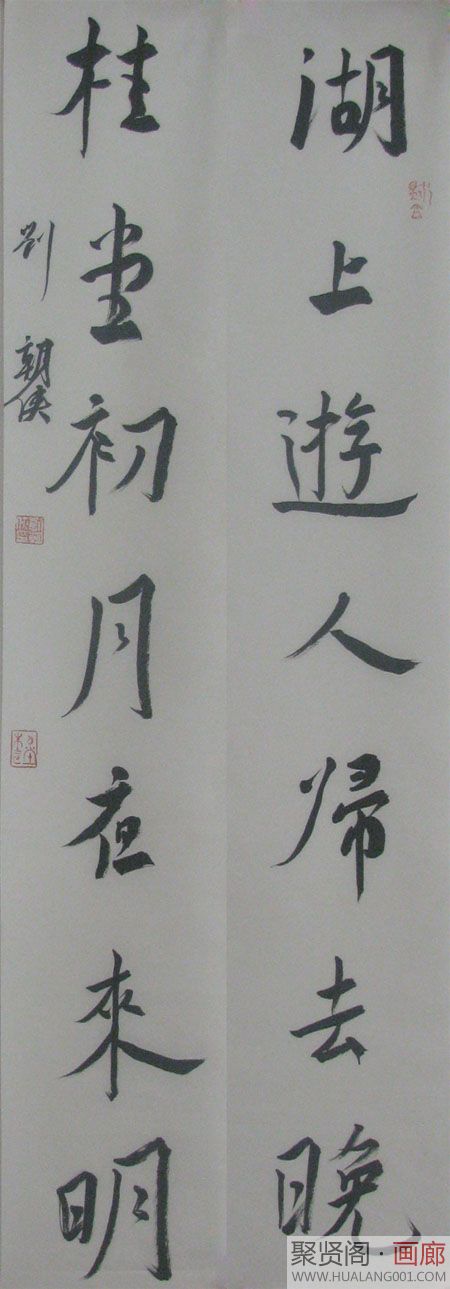 湖上遊人帰去晚
桂堂初月夜來明
刘朝侠
聚贤阁·画廊
WWW.HUALANG001.COM